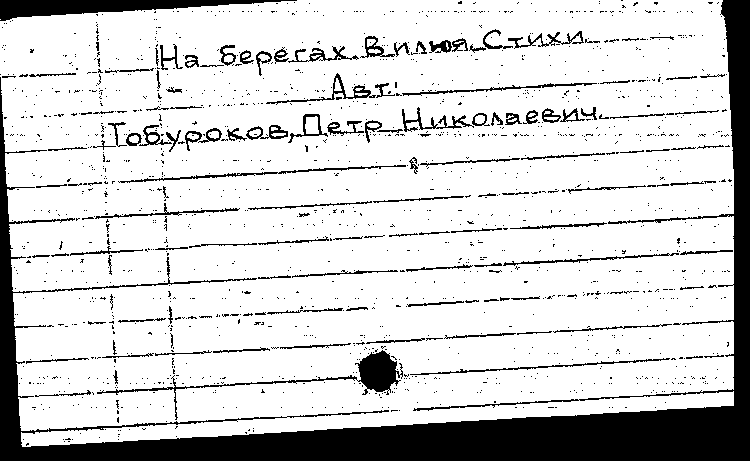 На берегах Вилюя. Стихи.
Авт:
Тобуроков, Петр Николаевич.